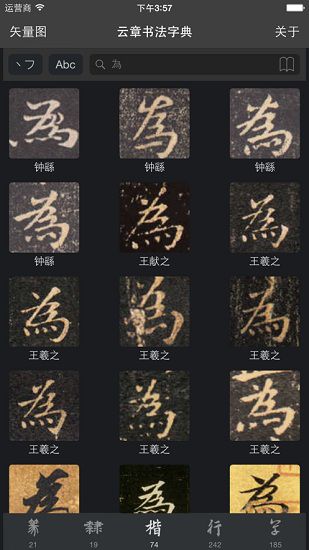 运营商 下午3:57
矢量图 云章书法字典 关于
丶フ Abc 為
為 為 為
钟繇 钟繇 钟繇
為 為 為
钟繇 王献之 王羲之
為 為 為
王羲之 王羲之 王羲之
為 為 為
王羲之 王羲之 王羲之
為 為 為
篆 隸 楷 行 字
21 19 74 242 185